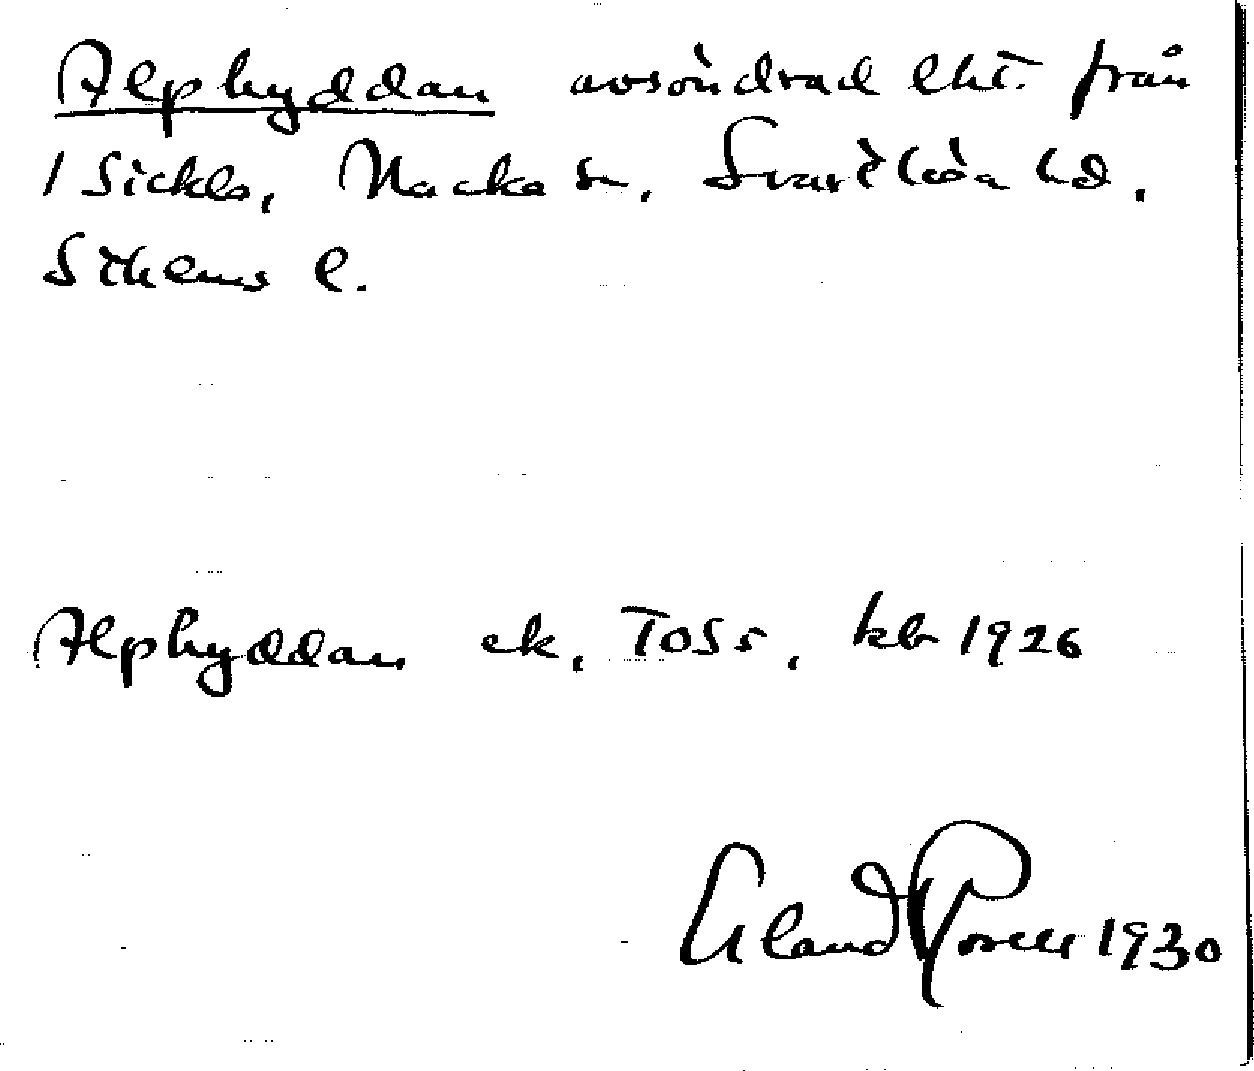 Alphyddan avsöndrad lht. från
1 Sickla, Nacka sn, Svartlösa hd,
Sthlms l.
Alphyddan ek, T0S5, kbr 1926
1930